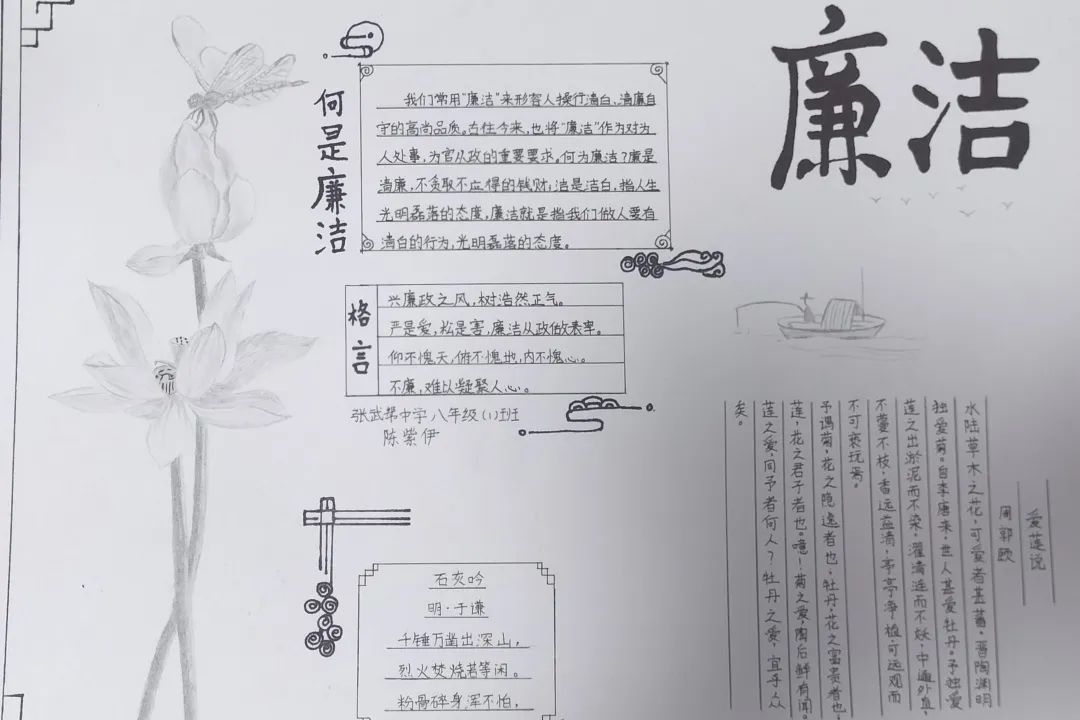 廉洁
何是廉洁
我们常用“廉洁”来形容人操行清白、清廉自
守的高尚品质。古往今来，也将“廉洁”作为对为
人处事，为官从政的重要要求。何为廉洁？廉是
清廉，不贪取不应得的钱财；洁是洁白，指人生
光明磊落的态度，廉洁就是指我们做人要有
清白的行为，光明磊落的态度。
格言
兴廉政之风，树浩然正气。
严是爱，松是害，廉洁从政做表率。
仰不愧天，俯不愧地，内不愧心。
不廉，难以凝聚人心。
中学八年级(1)班
陈紫伊
石灰吟
明·于谦
千锤万凿出深山，
烈火焚烧若等闲。
粉骨碎身浑不怕，
爱莲说
周郭颐
水陆草木之花，可爱者甚蕃。晋陶渊明
独爱菊。自李唐来，世人甚爱牡丹。予独爱
莲之出淤泥而不染，濯清涟而不妖，中通外直，
不蔓不枝，香远益清，亭亭净植，可远观而
不可亵玩焉。
予谓菊，花之隐逸者也，牡丹，花之富贵者也，
莲，花之君子者也。噫！菊之爱，陶后鲜有闻。
莲之爱，同予者何人？牡丹之爱，宜乎众
矣。